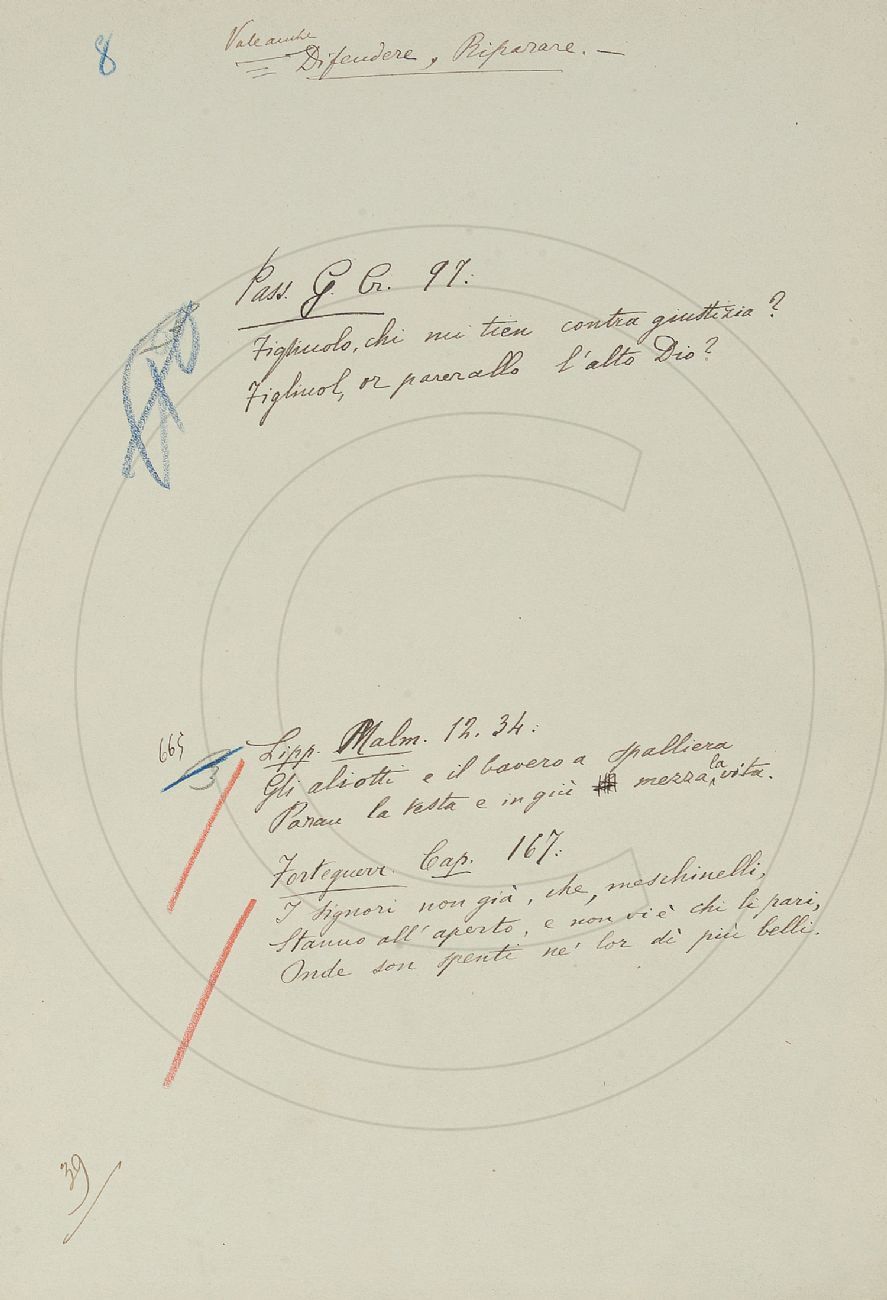 8
Vale anche
Difendere, Riparare. —
Pass. G. Cr. 97:
Figliuolo, chi mi tien contra giustizia?
Figliuol, or parerallo l'alto Dio?
665
3
Lipp. Malm. 12. 34:
Gli aliotti e il bavero a spalliera
Paran la testa e in giù mezza la vita.
Forteguerr. Cap. 167:
I signori non già, che, meschinelli,
Stanno all'aperto, e non vi è chi li pari,
Onde son spenti ne' lor dì più belli.
39